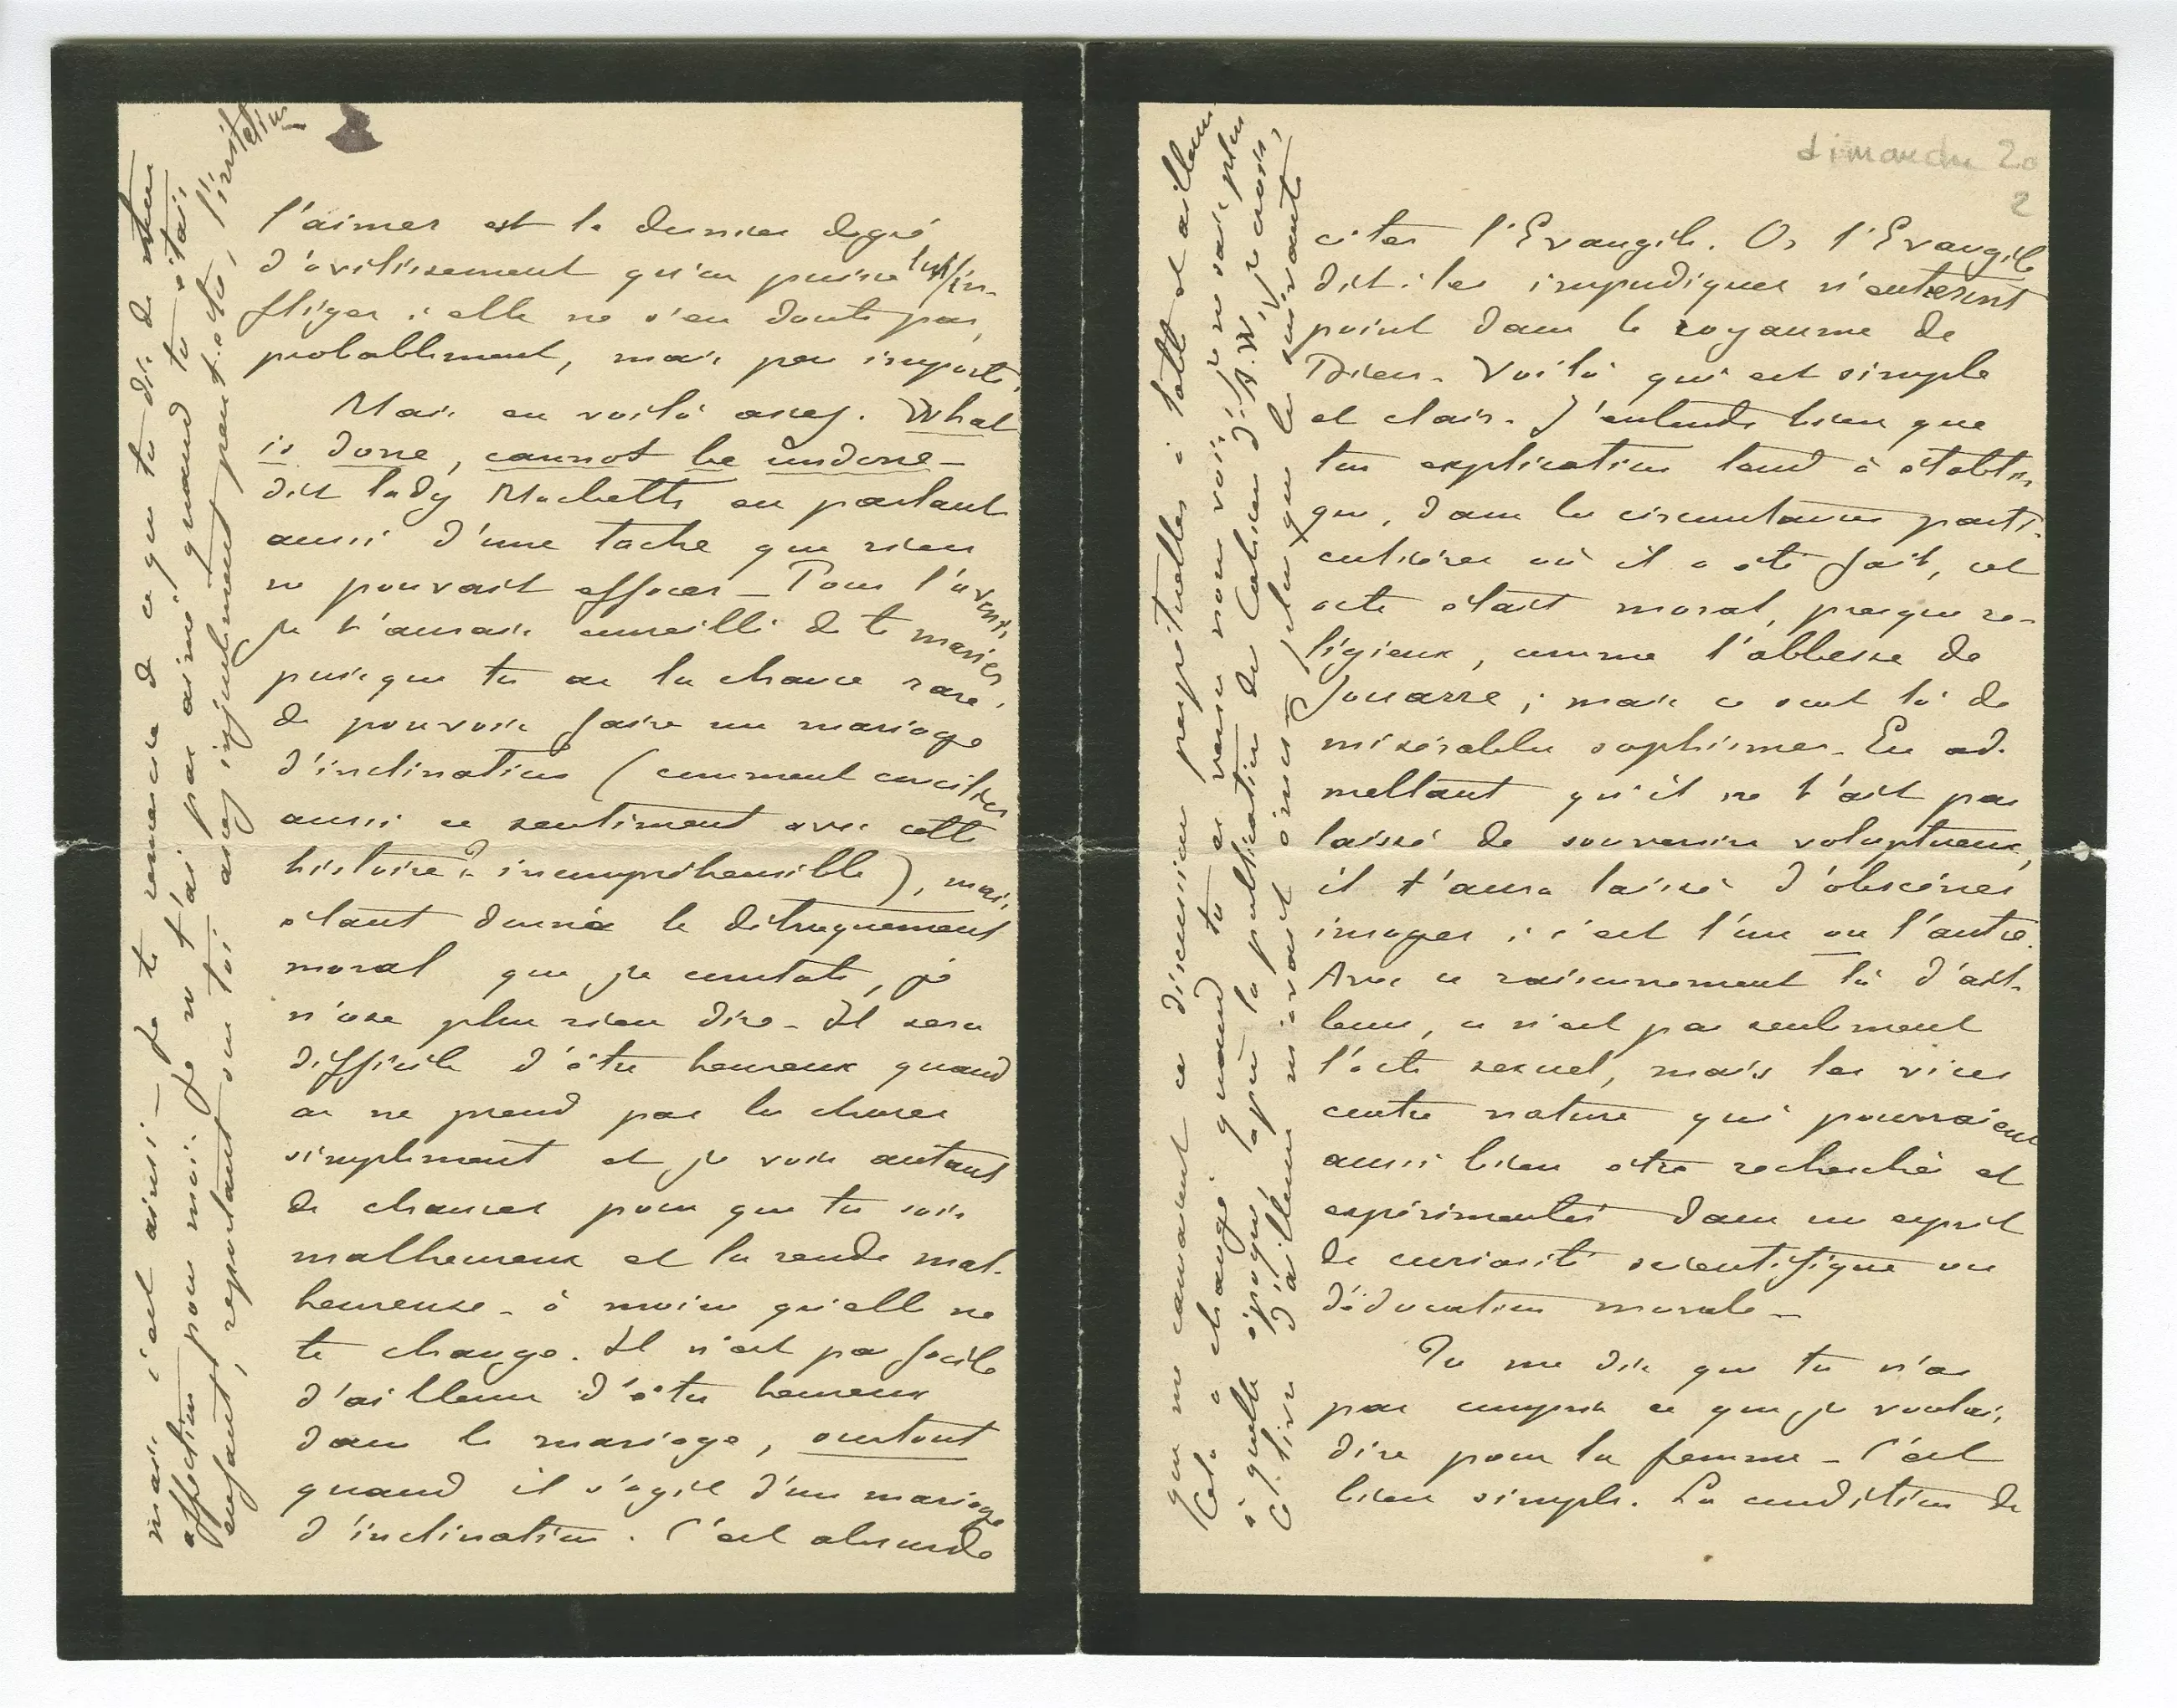 l'aimer est le dernier degré
d'avilissement qu'on puisse lui in-
fliger : elle ne s'en doute pas,
probablement, mais peu importe.
Mais en voilà assez. What
is done, cannot be undone –
dit lady Macbeth en parlant
aussi d'une tache que rien
ne pouvait effacer – Pour l'avenir
je t'aurais conseillé de te marier
puisque tu as la chance rare,
de pouvoir faire un mariage
d'inclination (comment concilier
aussi ce sentiment avec cette
histoire ? incompréhensible), mais,
étant donnée le détraquement
moral que je constate, je
n'ose plus rien dire – Il sera
difficile d'être heureux quand
on ne prend pas les choses
simplement et je vois autant
de chances pour que tu sois
malheureux et la rende mal-
heureuse – à moins qu'elle ne
te change. Il n'est pas facile
d'ailleurs d'être heureux
dans le mariage, surtout
quand il s'agit d'un mariage
d'inclination. C'est absurde
mais c'est ainsi – Je te remercie de ce que tu dis de notre
affection pour moi. Je ne t'ai pas aimé quand tu étais
enfant, reportant sur toi assez injustement peut-être, l'irritation
dimanche 20
2
citer l'Evangile. Or l'Evangile
dit : les impudiques n'entreront
point dans le royaume de
Dieu – Voilà qui est simple
et clair – J'entends bien que
ton explication tend à établir
que, dans les circonstances parti-
culières où il a été fait, cet
acte était moral, presque re-
ligieux, comme l'abbesse de
Jouarre ; mais ce sont là de
misérables sophismes – En ad-
mettant qu'il ne t'ait pas
laissé de souvenirs voluptueux,
il t'aura laissé d'obscènes
images ; c'est l'un ou l'autre.
Avec ce raisonnement là d'ail-
leurs, ce n'est pas seulement
l'acte sexuel, mais les vices
contre nature qui pourraient
aussi bien être recherchés et
expérimentés dans un esprit
de curiosité scientifique ou
d'éducation morale –
Tu me dis que tu n'as
pas compris ce que je voulais
dire pour la femme – C'est
bien simple. La condition de
que me causaient ces discussions perpétuelles à table et ailleurs
Cela a changé quand tu es venu nous voir, je ne sais plus
à quelle époque, après la publication des Cahiers d'A. W, je crois,
Ce livre d'ailleurs m'avait ému plus que les suivants